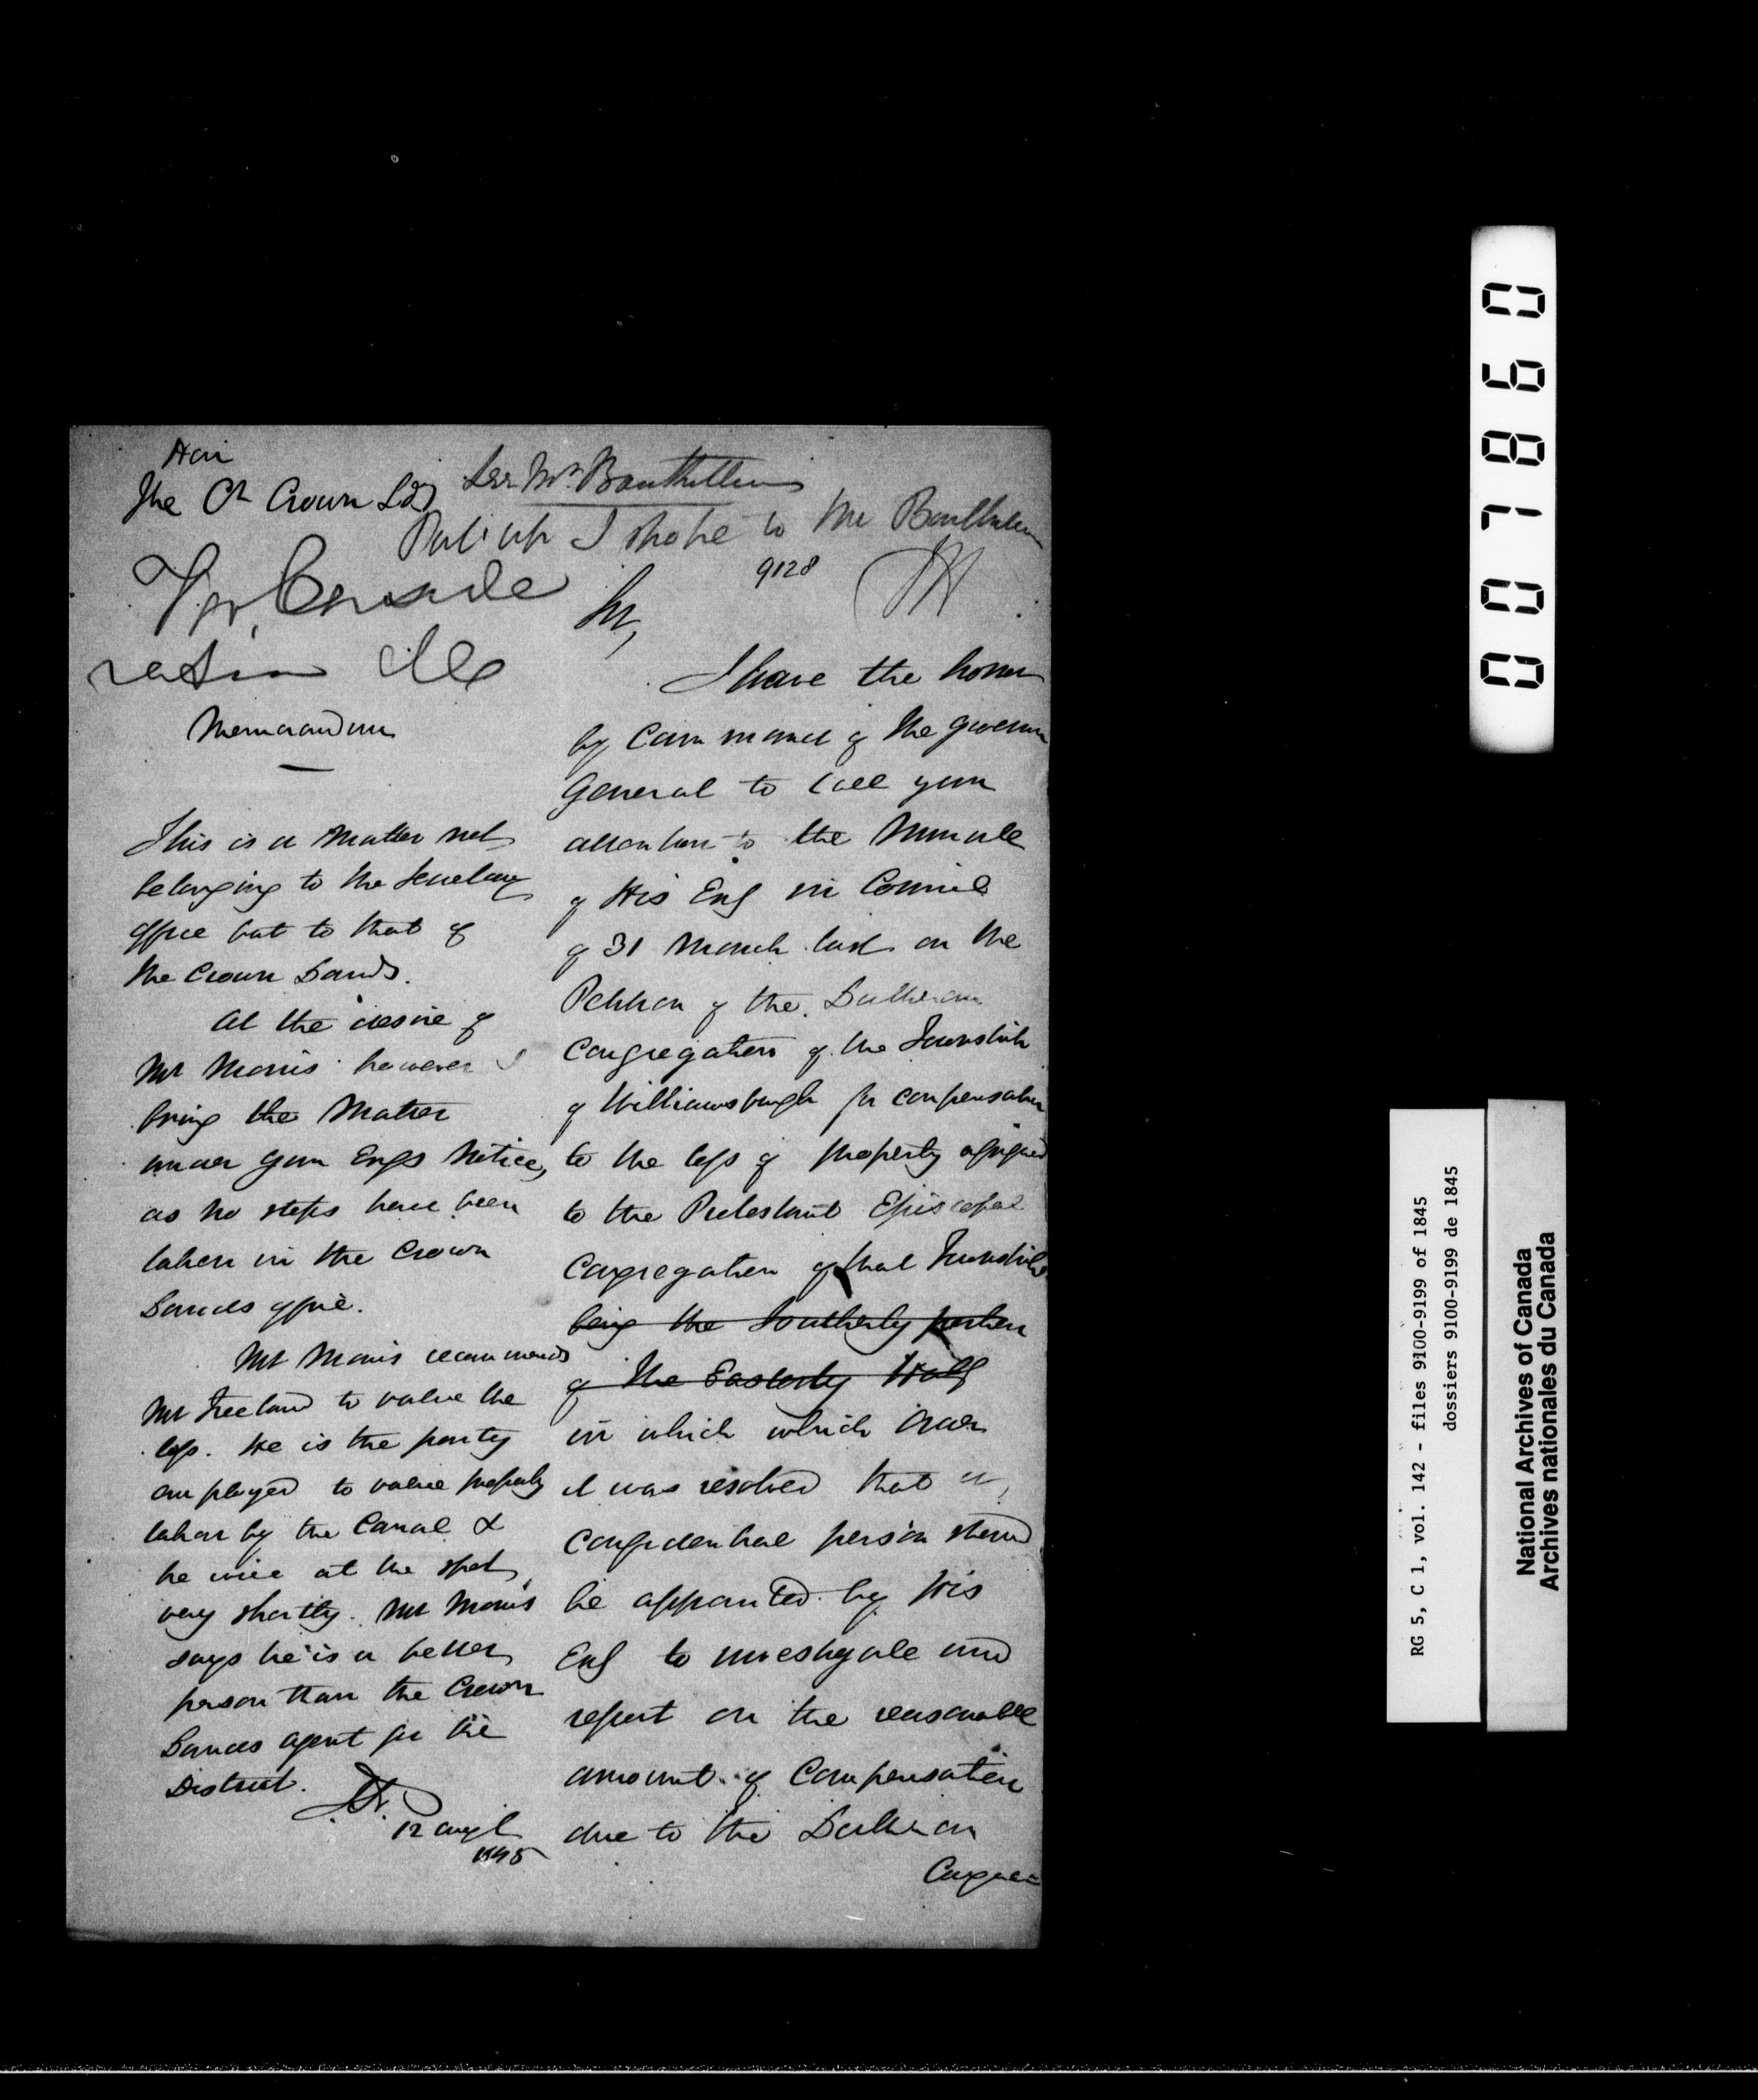 Hon
The Cr Crown Lds
See Mr. Bouthillier
Put up I spoke to Mr Bouthillier
9128
For Conside
ration
Memorandum
This is a matter not
belonging to the Secretary
Office but to that of
the Crown Lands.
At the desire of
Mr Morris however I
bring the matter
under your Exys notice,
as no steps have been
taken in the Crown
Lands office.
Mr Morris recommends
Mr Treeland to value the
loss. He is the party
employed to value property
taken by the Canal &
he will at the spot
very shortly. Mr Morris
says he is a better
person than the Crown
Lands agent for the
District.
12 augt
1845
Sir,
I have the honor
by Command of the Governor
General to call your
attention to the Minute
of His Exy in Council
of 31 March last on the
Petition of the Lutheran
Congregation of the Township
of Williamsburgh for compensation
to the loss of property assigned
to the Protestant Episcopal
Congregation of that Township
being the Southerly portion
of the Easterly Half
in which which Order
it was resolved that a
Confidential person should
be appointed by His
Exy to investigate and
report on the reasonable
amount of Compensation
due to the Lutheran
Congre=
007860
RG 5, C 1, vol. 142 - files 9100-9199 of 1845
dossiers 9100-9199 de 1845
National Archives of Canada
Archives nationales du Canada